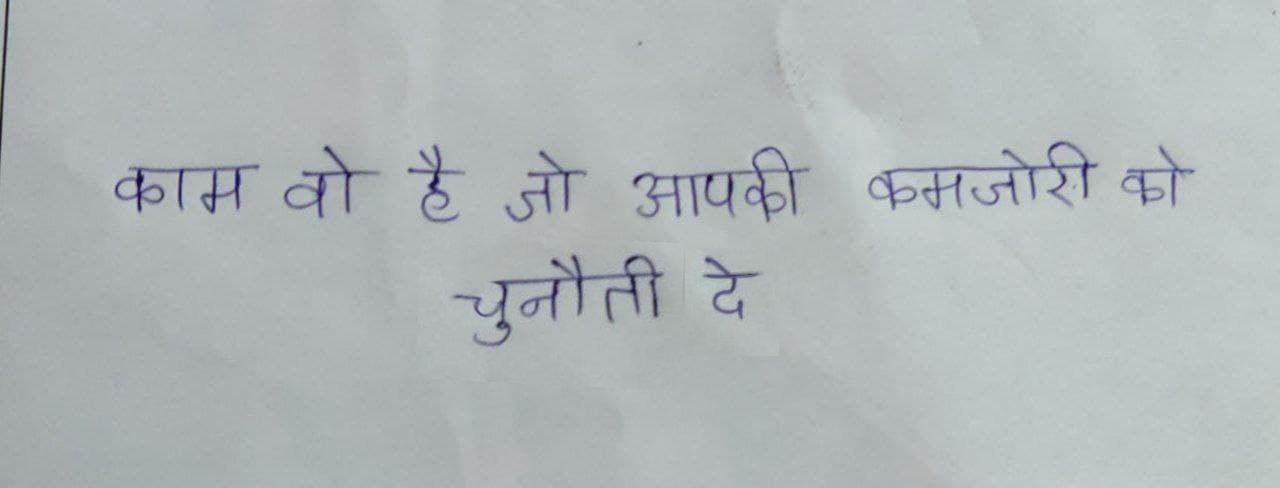 काम वो है जो आपकी कमजोरी को
चुनौती दे